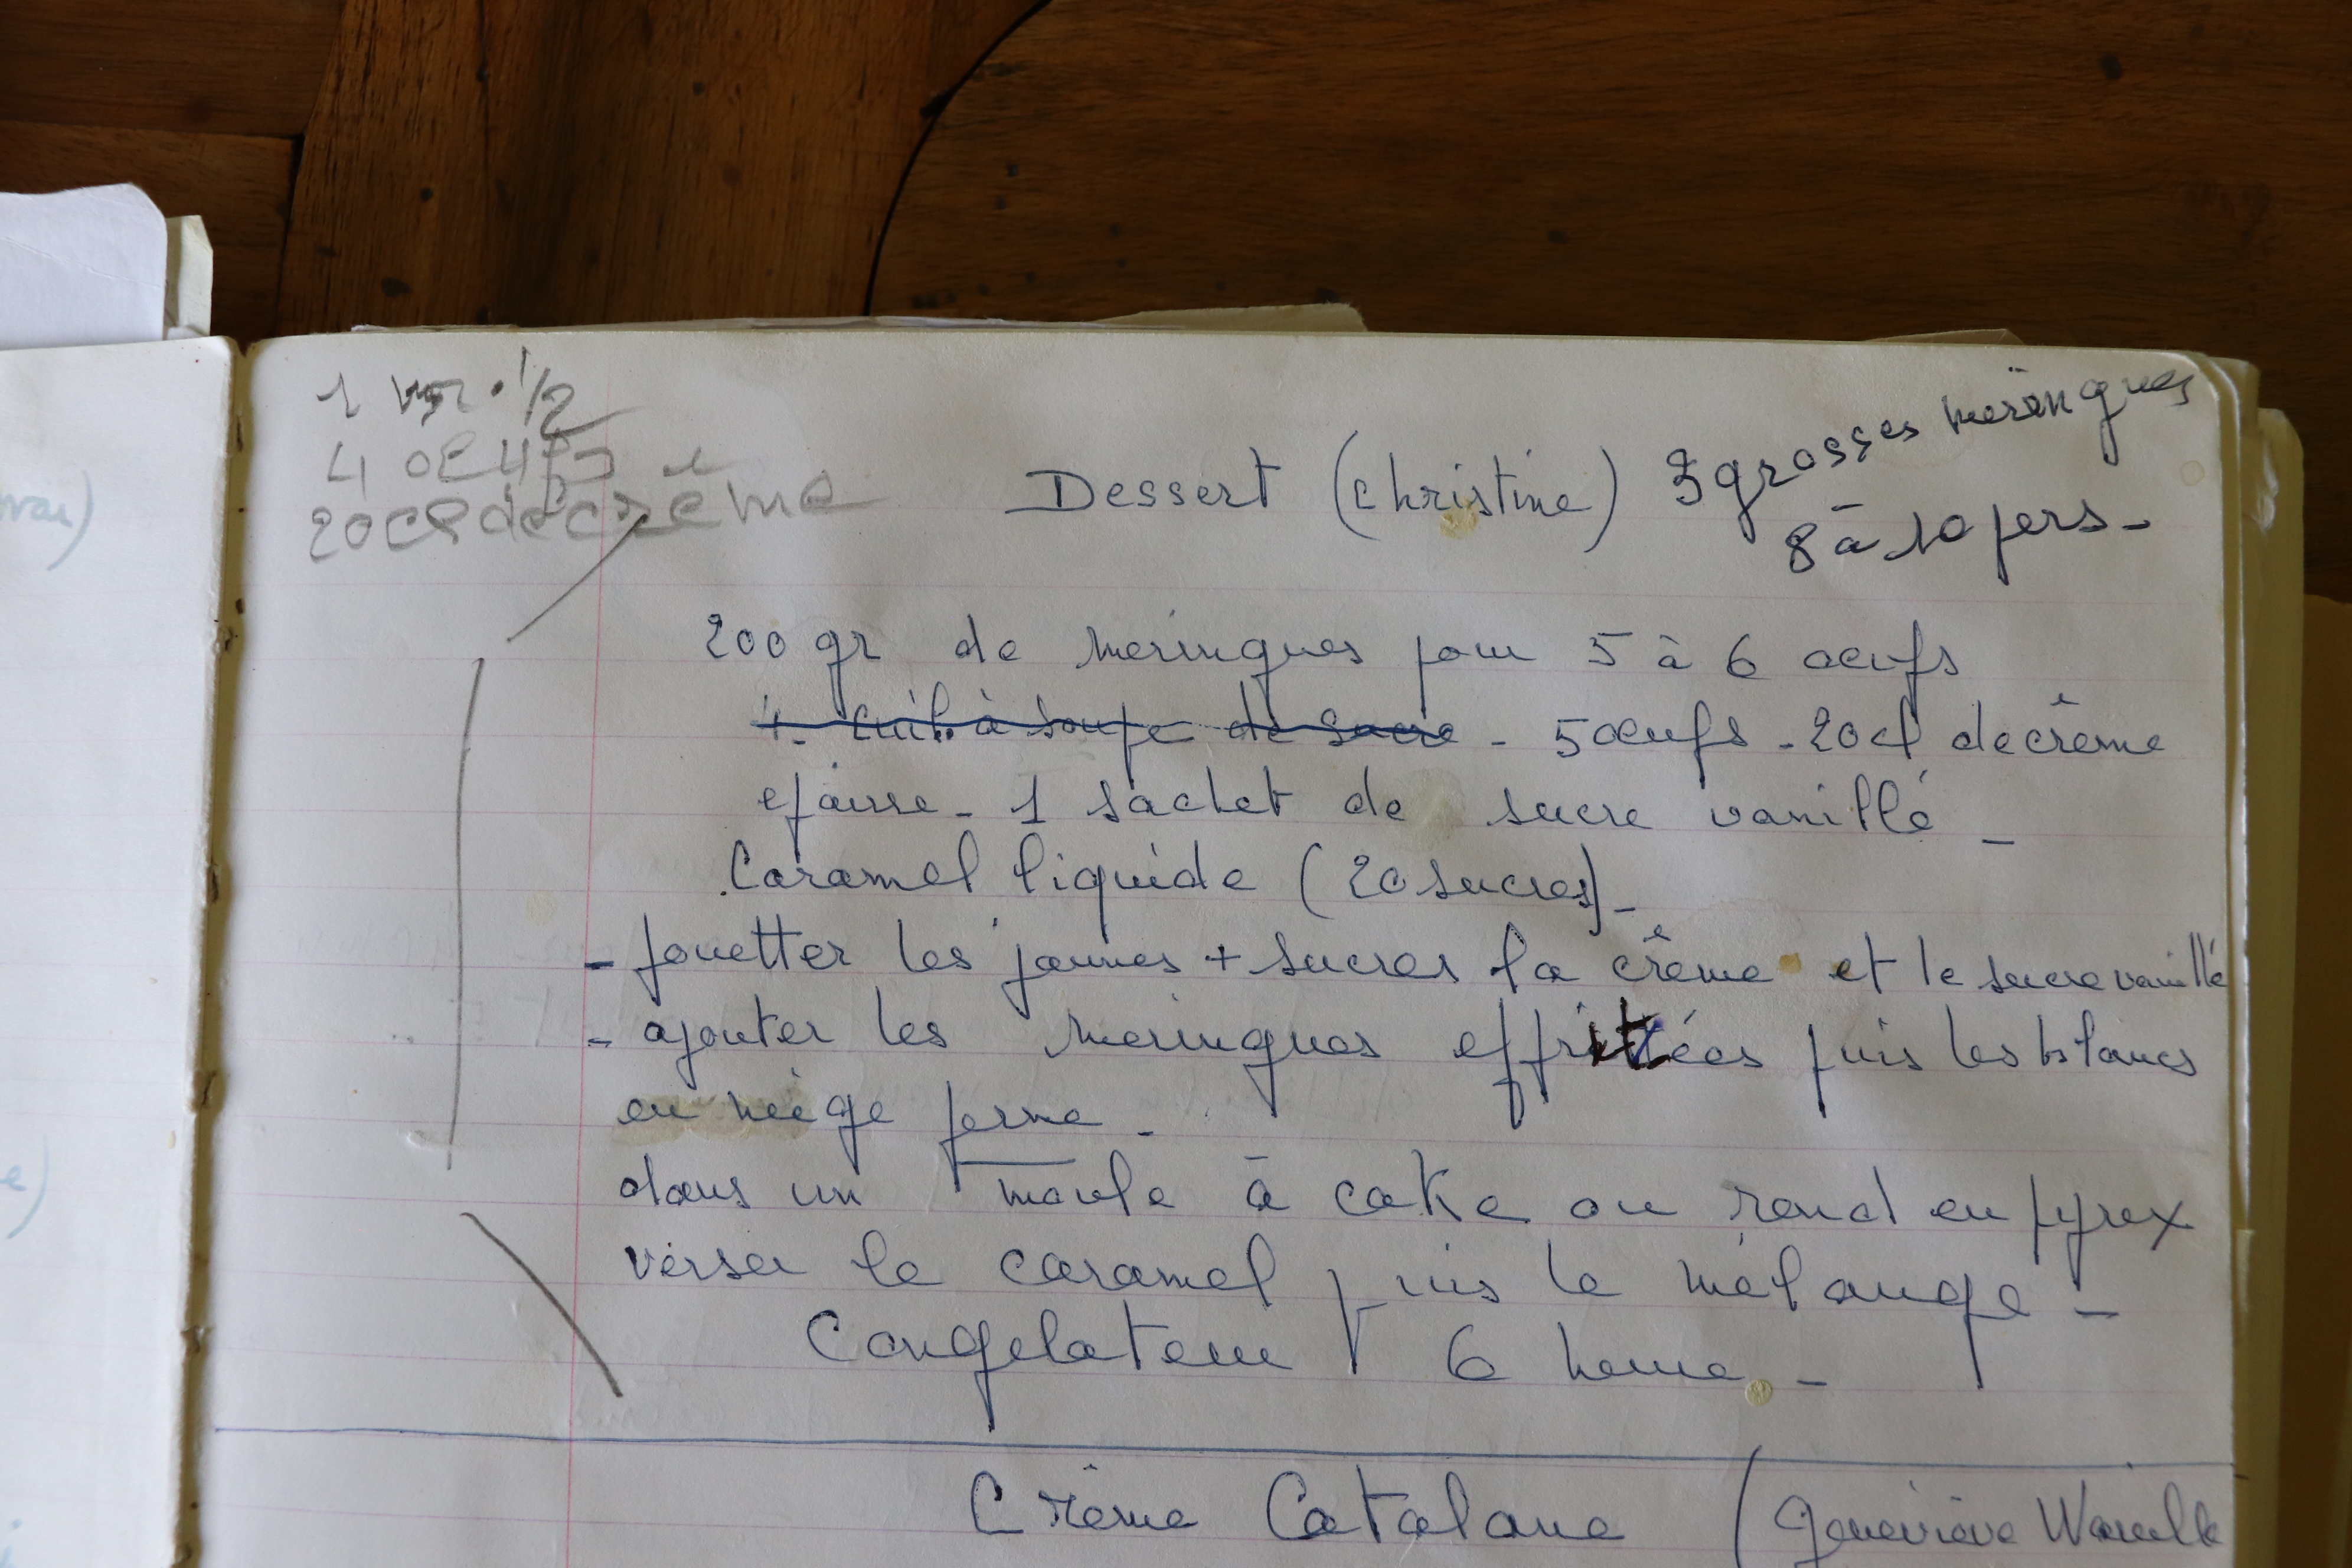 1 . 1/2
4 oeufs
20 cl de crème
Dessert (Christine) 3 grosses meringues
8 à 10 pers -
200 gr de meringues pour 5 à 6 oeufs
4. cuil. à soupe de sucre - 5 oeufs - 20 cl de crême
epaisse - 1 sachet de sucre vanillé -
Caramel liquide (20 sucres) -
- fouetter les jaunes + sucres la crême et le sucre vanillé
- ajouter les meringues effritées puis les blancs
en neige ferme -
dans un moule à cake ou rond en pyrex
verser le caramel puis le mélange -
Congelateur 6 heure. -
Crême Catalane (Geneviève